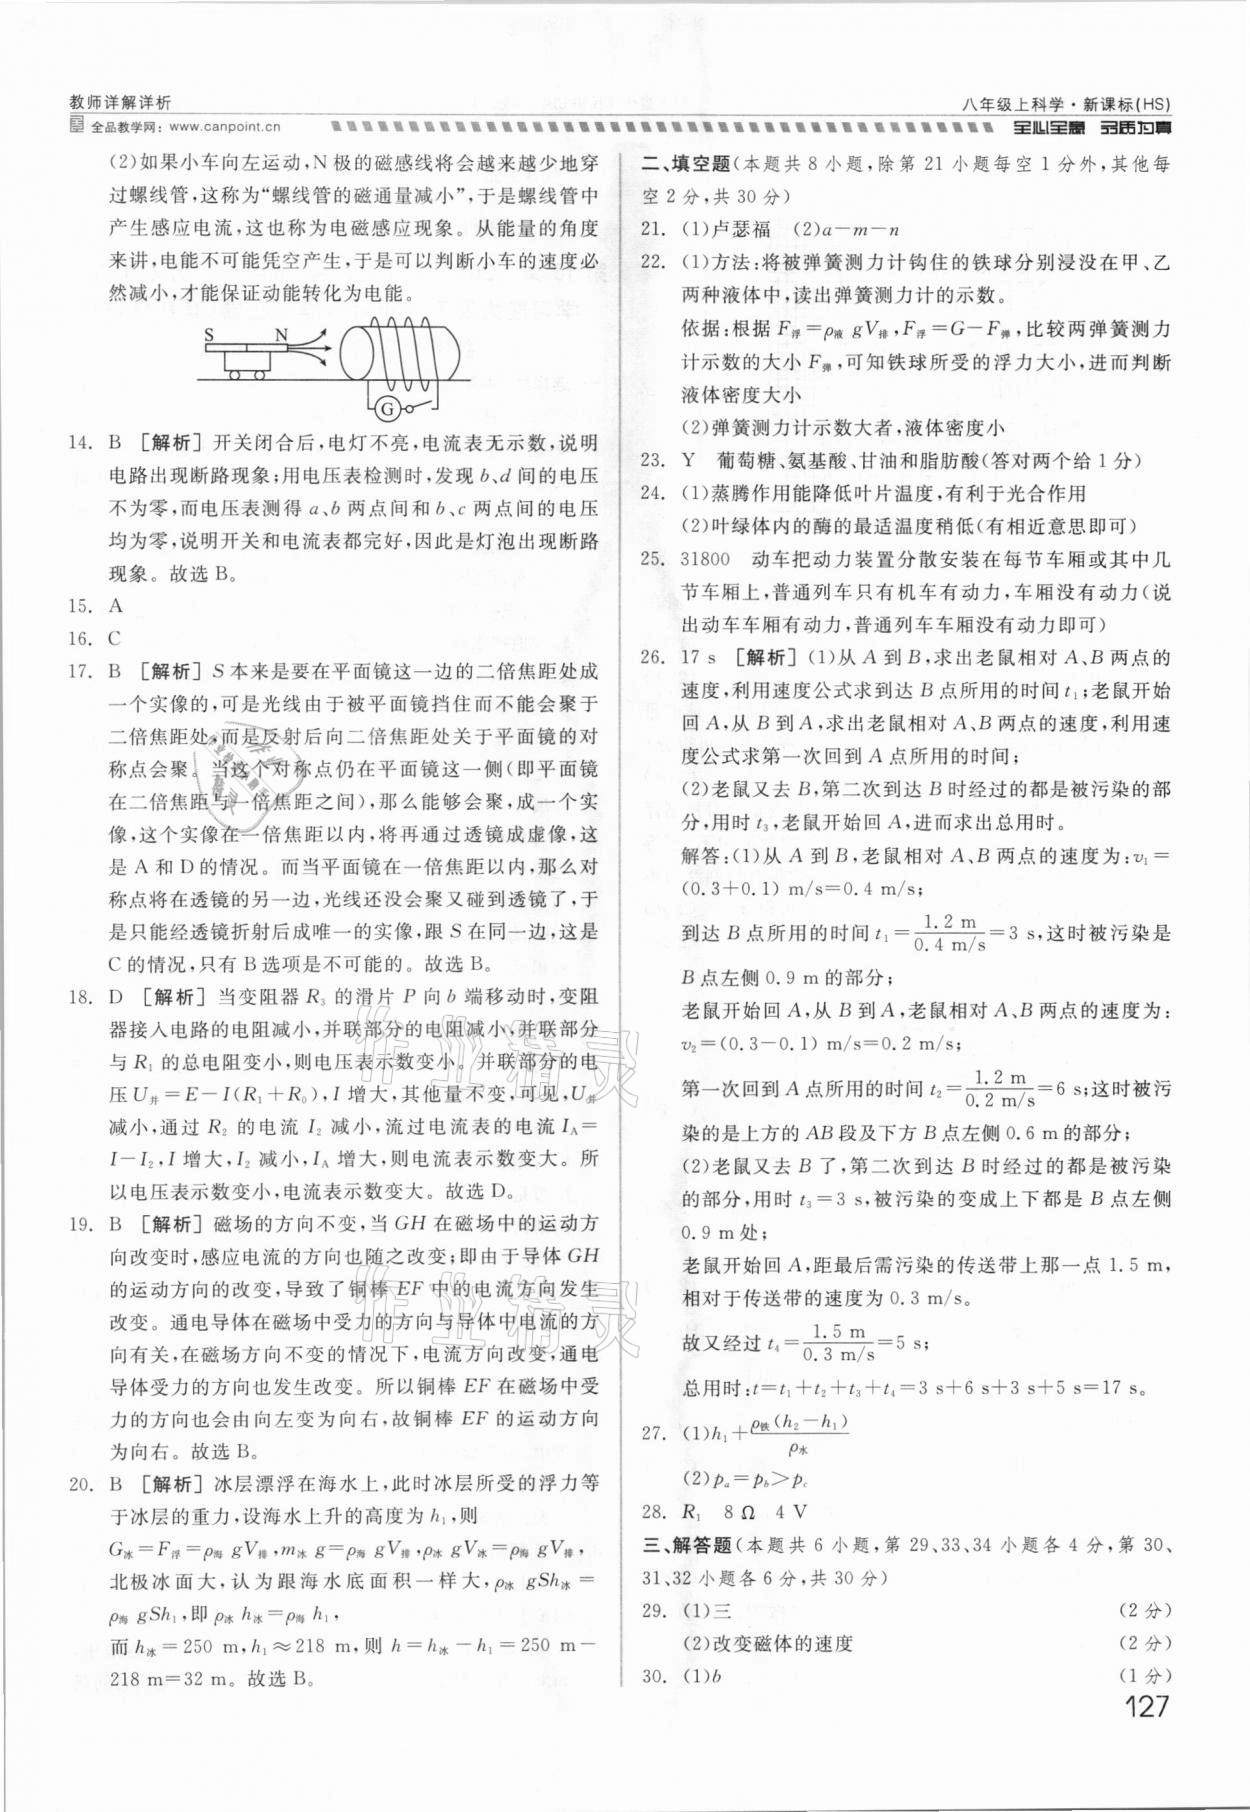 教师详解详析
八年级上科学·新课标(HS)
全品教学网：www.canpoint.cn
全心全意 品质为真
(2)如果小车向左运动,N极的磁感线将会越来越少地穿
过螺线管,这称为“螺线管的磁通量减小”,于是螺线管中
产生感应电流,这也称为电磁感应现象。从能量的角度
来讲,电能不可能凭空产生,于是可以判断小车的速度必
然减小,才能保证动能转化为电能。
S N
G
14. B [解析]开关闭合后,电灯不亮,电流表无示数,说明
电路出现断路现象;用电压表检测时,发现b、d间的电压
不为零,而电压表测得a、b两点间和b、c两点间的电压
均为零,说明开关和电流表都完好,因此是灯泡出现断路
现象。故选B。
15. A
16. C
17. B [解析]S本来是要在平面镜这一边的二倍焦距处成
一个实像的,可是光线由于被平面镜挡住而不能会聚于
二倍焦距处,而是反射后向二倍焦距处关于平面镜的对
称点会聚。当这个对称点仍在平面镜这一侧(即平面镜
在二倍焦距与一倍焦距之间),那么能够会聚,成一个实
像,这个实像在一倍焦距以内,将再通过透镜成虚像,这
是A和D的情况。而当平面镜在一倍焦距以内,那么对
称点将在透镜的另一边,光线还没会聚又碰到透镜了,于
是只能经透镜折射后成唯一的实像,跟S在同一边,这是
C的情况,只有B选项是不可能的。故选B。
18. D [解析]当变阻器R₃的滑片P向b端移动时,变阻
器接入电路的电阻减小,并联部分的电阻减小,并联部分
与R₁的总电阻变小,则电压表示数变小。并联部分的电
压U并=E-I(R₁+R₀),I增大,其他量不变,可见,U并
减小,通过R₂的电流I₂减小,流过电流表的电流I_A=
I-I₂,I增大,I₂减小,I_A增大,则电流表示数变大。所
以电压表示数变小,电流表示数变大。故选D。
19. B [解析]磁场的方向不变,当GH在磁场中的运动方
向改变时,感应电流的方向也随之改变;即由于导体GH
的运动方向的改变,导致了铜棒EF中的电流方向发生
改变。通电导体在磁场中受力的方向与导体中电流的方
向有关,在磁场方向不变的情况下,电流方向改变,通电
导体受力的方向也发生改变。所以铜棒EF在磁场中受
力的方向也会由向左变为向右,故铜棒EF的运动方向
为向右。故选B。
20. B [解析]冰层漂浮在海水上,此时冰层所受的浮力等
于冰层的重力,设海水上升的高度为h₁,则
G冰=F浮=ρ海gV排,m冰g=ρ海gV排,ρ冰gV冰=ρ海gV排,
北极冰面大,认为跟海水底面积一样大,ρ冰gSh冰=
ρ海gSh₁,即ρ冰h冰=ρ海h₁,
而h冰=250 m,h₁≈218 m,则h=h冰-h₁=250 m-
218 m=32 m。故选B。
二、填空题(本题共8小题,除第21小题每空1分外,其他每
空2分,共30分)
21. (1)卢瑟福 (2)a-m-n
22. (1)方法:将被弹簧测力计钩住的铁球分别浸没在甲、乙
两种液体中,读出弹簧测力计的示数。
依据:根据F浮=ρ液gV排,F浮=G-F弹,比较两弹簧测力
计示数的大小F弹,可知铁球所受的浮力大小,进而判断
液体密度大小
(2)弹簧测力计示数大者,液体密度小
23. Y 葡萄糖、氨基酸、甘油和脂肪酸(答对两个给1分)
24. (1)蒸腾作用能降低叶片温度,有利于光合作用
(2)叶绿体内的酶的最适温度稍低(有相近意思即可)
25. 31800 动车把动力装置分散安装在每节车厢或其中几
节车厢上,普通列车只有机车有动力,车厢没有动力(说
出动车车厢有动力,普通列车车厢没有动力即可)
26. 17 s [解析](1)从A到B,求出老鼠相对A、B两点的
速度,利用速度公式求到达B点所用的时间t₁;老鼠开始
回A,从B到A,求出老鼠相对A、B两点的速度,利用速
度公式求第一次回到A点所用的时间;
(2)老鼠又去B,第二次到达B时经过的都是被污染的部
分,用时t₃,老鼠开始回A,进而求出总用时。
解答:(1)从A到B,老鼠相对A、B两点的速度为:v₁=
(0.3+0.1) m/s=0.4 m/s;
到达B点所用的时间t₁=1.2 m/0.4 m/s=3 s,这时被污染是
B点左侧0.9 m的部分;
老鼠开始回A,从B到A,老鼠相对A、B两点的速度为:
v₂=(0.3-0.1) m/s=0.2 m/s;
第一次回到A点所用的时间t₂=1.2 m/0.2 m/s=6 s;这时被污
染的是上方的AB段及下方B点左侧0.6 m的部分;
(2)老鼠又去B了,第二次到达B时经过的都是被污染
的部分,用时t₃=3 s,被污染的变成上下都是B点左侧
0.9 m处;
老鼠开始回A,距最后需污染的传送带上那一点1.5 m,
相对于传送带的速度为0.3 m/s。
故又经过t₄=1.5 m/0.3 m/s=5 s;
总用时:t=t₁+t₂+t₃+t₄=3 s+6 s+3 s+5 s=17 s。
27. (1)h₁+ρ铁(h₂-h₁)/ρ水
(2)pₐ=p_b>p_c
28. R₁ 8 Ω 4 V
三、解答题(本题共6小题,第29、33、34小题各4分,第30、
31、32小题各6分,共30分)
29. (1)三 (2分)
(2)改变磁体的速度 (2分)
30. (1)b (1分)
127
作业精灵
作业精灵